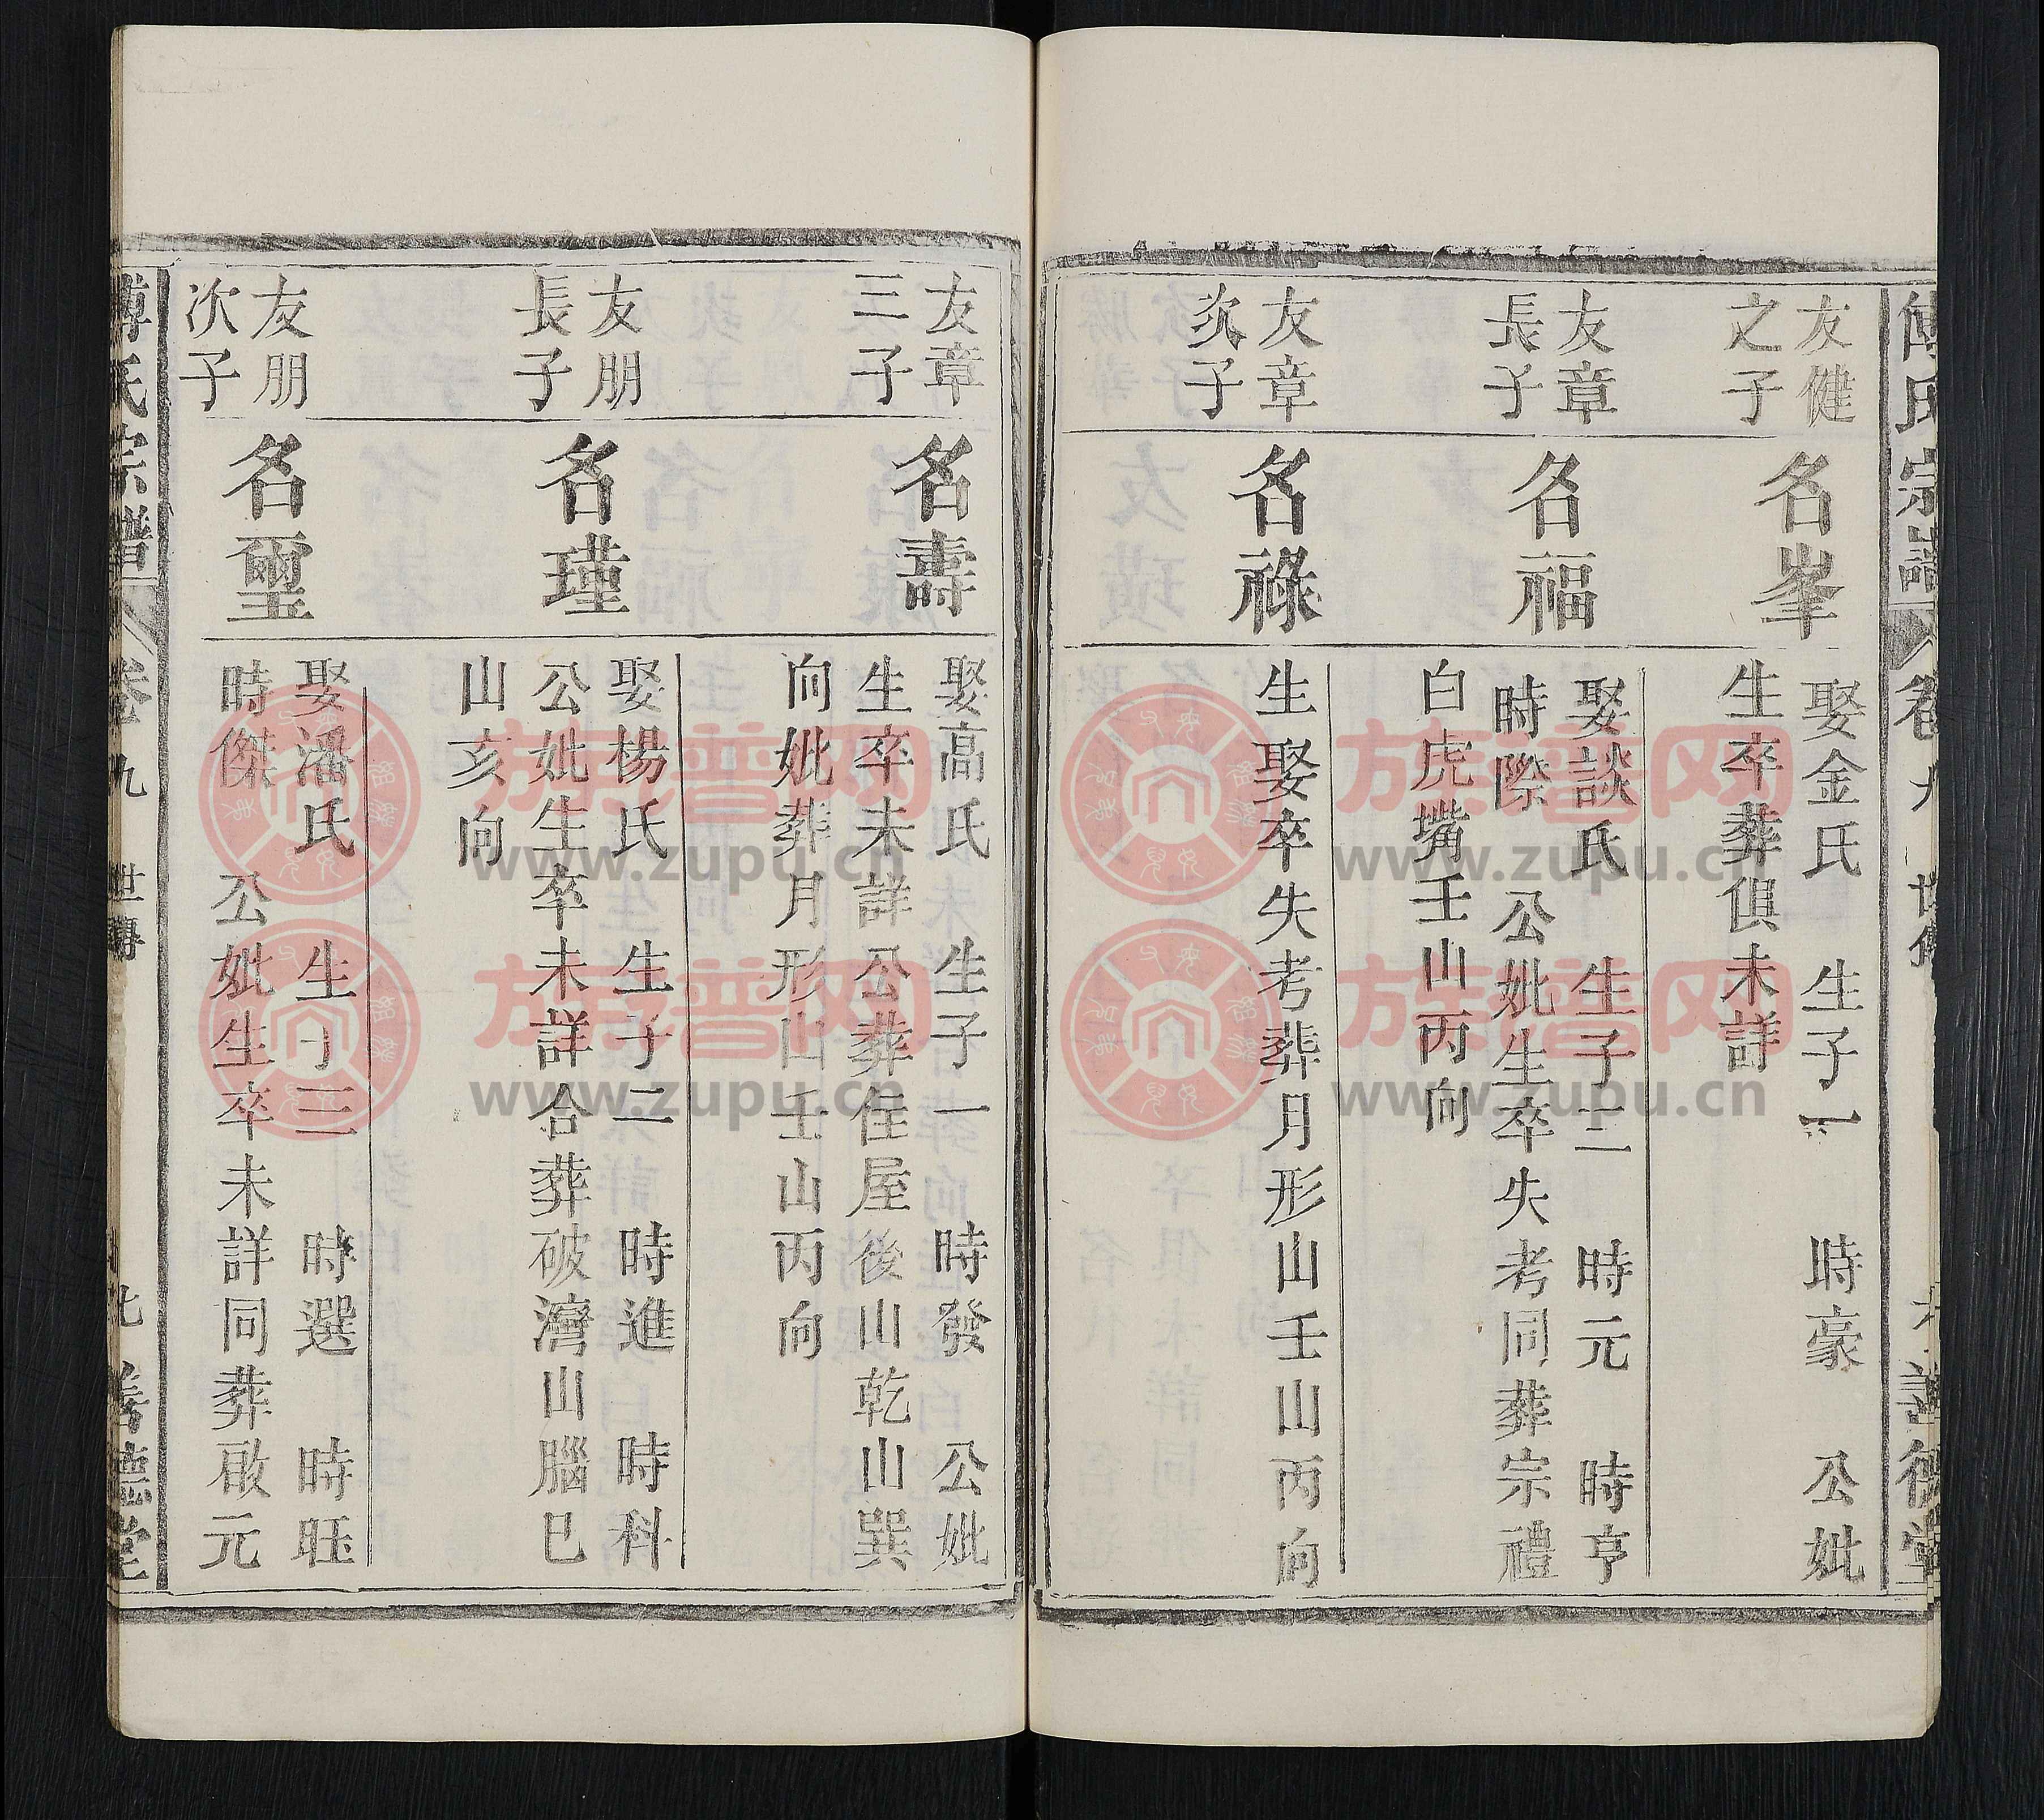 傅氏宗譜
卷九
世傳
善德堂
友健
之子
名峯
娶金氏 生子一 時豪 公妣
生卒葬俱未詳
友章
長子
名福
娶談氏 生子二 時元 時亨
時際 公妣生卒失考同葬宗禮
白虎嘴壬山丙向
友章
次子
名祿
生娶卒失考葬月形山壬山丙向
友章
三子
名壽
娶高氏 生子一 時發 公妣
生卒未詳公葬住屋後山乾山巽
向妣葬月形山壬山丙向
友朋
長子
名瑾
娶楊氏 生子二 時進 時科
公妣生卒未詳合葬破灣山腦巳
山亥向
友朋
次子
名璽
娶潘氏 生子三 時選 時旺
時傑 公妣生卒未詳同葬啟元
傅氏宗譜
卷九
世傳
善德堂
族谱网
www.zupu.cn
族谱网
www.zupu.cn
族谱网
www.zupu.cn
族谱网
www.zupu.cn